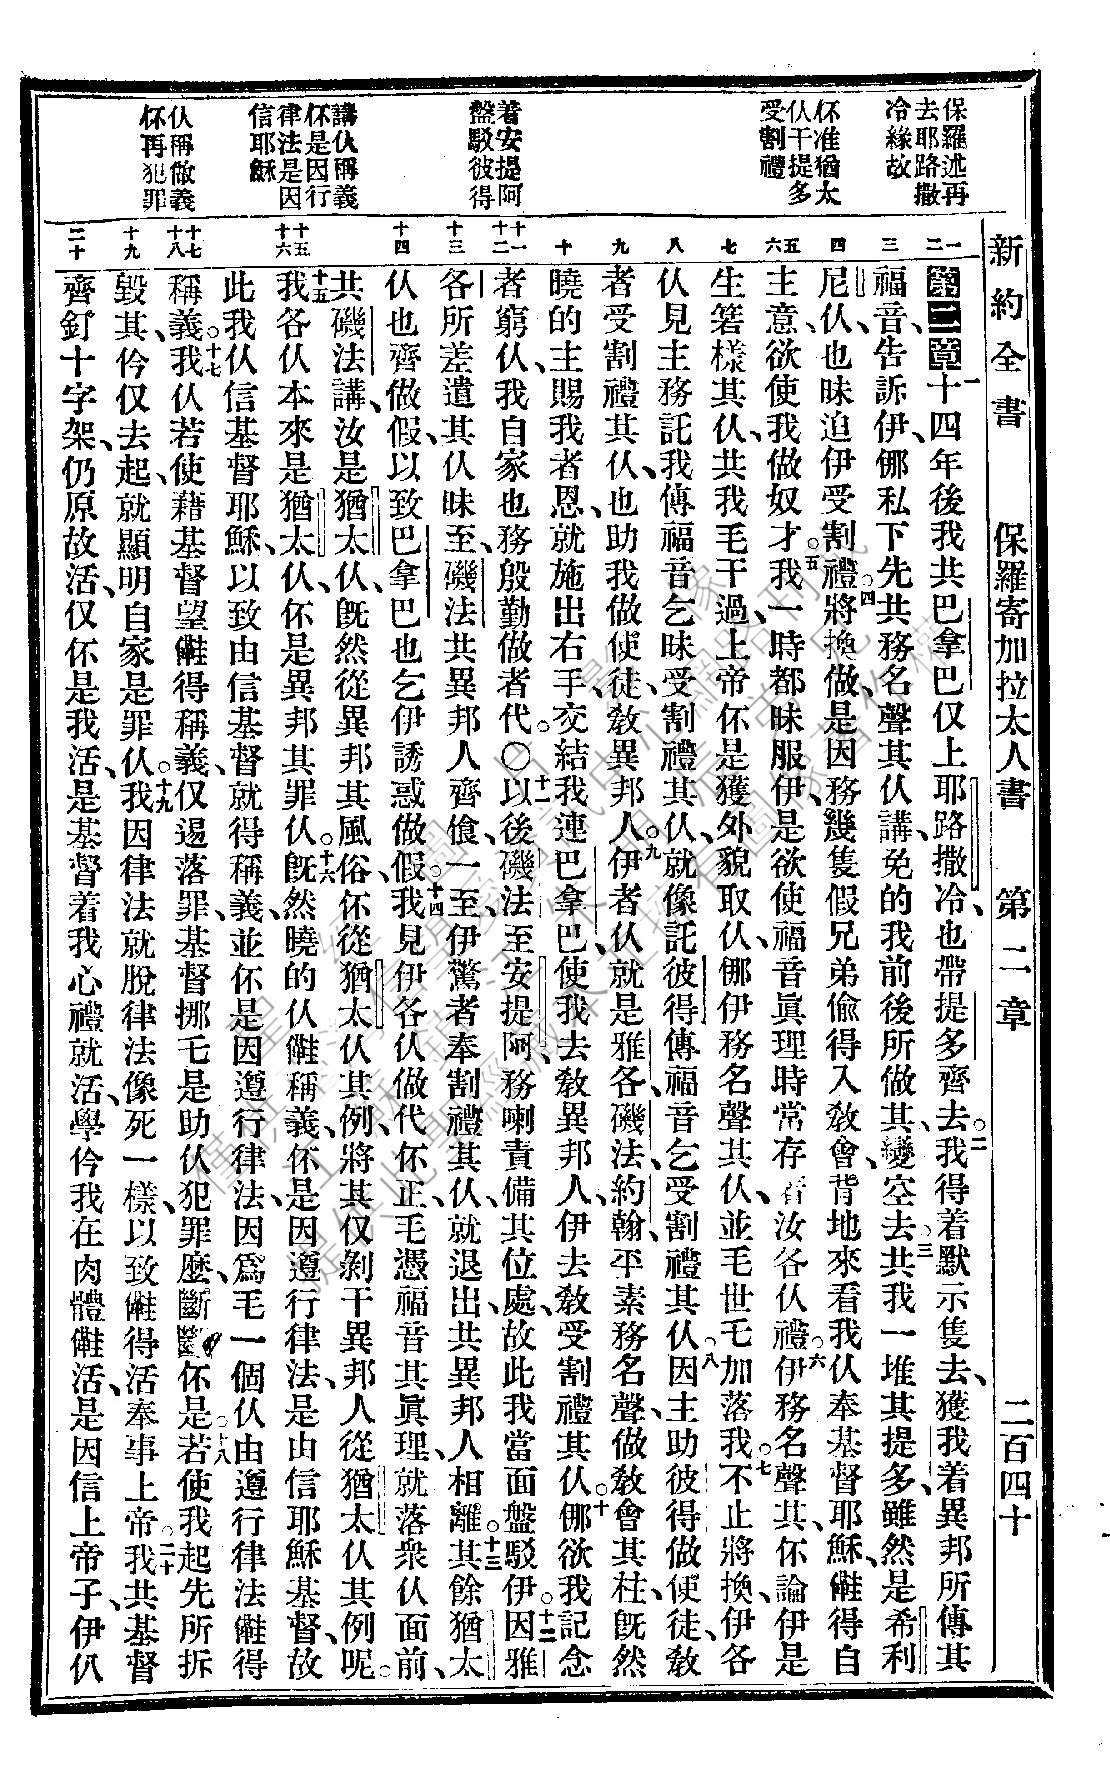 新約全書 保羅寄加拉太人書 第二章 二百四十
保羅述再
去耶路撒
冷緣故
伓准猶太
仈干提多
受割禮
着安提阿
盤駁彼得
講仈稱義
伓是因行
律法是因
信耶穌
仈稱做義
伓再犯罪
一 二 三 四 五 六 七 八 九 十 十一 十二 十三 十四 十五 十六 十七 十八 十九 二十
第二章 一 十四年後我共巴拿巴仅上耶路撒冷也帶提多齊去。二 我得着默示隻去、獲我着異邦所傳其
福音、告訴伊、㑚私下先共務名聲其仈講、免的我前後所做其、變空去。三 共我一堆其提多、雖然是希利
尼仈、也昧迫伊受割禮。四 將換做、是因務幾隻假兄弟偷得入敎會、背地來看我仈奉基督耶穌、㒁得自
主意、欲使我做奴才。五 我一時都昧服伊、是欲使福音眞理時常存着汝各仈禮。六 伊務名聲其、伓論伊是
生箬樣其仈、共我毛干過、上帝伓是獲外貌取仈、㑚伊務名聲其仈、並毛世乇加落我。七 不止將換、伊各
仈見主務託我傳福音乞昧受割禮其仈、就像託彼得傳福音乞受割禮其仈。八 因主助彼得做使徒、敎
者受割禮其仈、也助我做使徒、敎異邦人。九 伊者仈就是雅各、磯法、約翰平素務名聲、做敎會其柱、旣然
曉的主賜我者恩、就施出右手、交結我連巴拿巴、使我去敎異邦人、伊去敎受割禮其仈。十 㑚欲我記念
者窮仈、我自家也務殷勤做者代。〇十一 以後磯法至安提阿、務喇責備其位處、故此我當面盤駁伊。十二 因雅
各所差遣其仈昧至、磯法共異邦人齊飡、一至、伊驚者奉割禮其仈、就退出、共異邦人相離。十三 其餘猶太
仈也齊做假、以致巴拿巴也乞伊誘惑做假。十四 我見伊各仈做代伓正、毛憑福音其眞理、就落衆仈面前、
共磯法講、汝是猶太仈、旣然從異邦其風俗、伓從猶太仈其例、將其仅剝干異邦人從猶太仈其例呢。
十五 我各仈本來是猶太仈、伓是異邦其罪仈。十六 旣然曉的仈㒁稱義、伓是因遵行律法、是由信耶穌基督、故
此我仈信基督耶穌、以致由信基督就得稱義、並伓是因遵行律法、因爲毛一個仈由遵行律法㒁得
稱義。十七 我仈若使藉基督望㒁得稱義、仅逿落罪、基督挪乇是助仈犯罪麽、斷斷伓是。十八 若使我起先所拆
毀其、仱仅去起、就顯明自家是罪仈。十九 我因律法就脫律法、像死一樣、以致㒁得活奉事上帝。二十 我共基督
齊釘十字架、仍原故活、仅伓是我活、是基督着我心禮就活、學仱我在肉體㒁活、是因信上帝子、伊仈